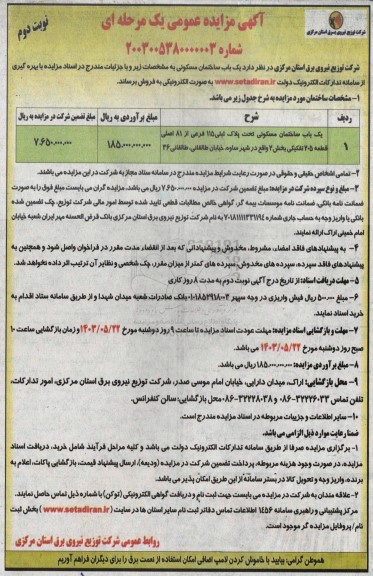 شرکت توزیع نیروی برق استان مرکزی
آگهی مزایده عمومی یک مرحله ای
نوبت دوم
شماره 2003005380000003
شرکت توزیع نیروی برق استان مرکزی در نظر دارد یک باب ساختمان مسکونی به مشخصات زیر و با جزئیات مندرج در اسناد مزایده با بهره گیری
از سامانه تدارکات الکترونیکی دولت www.setadiran.ir به صورت الکترونیکی به فروش برساند.
1- مشخصات ساختمان مورد مزایده به شرح جدول زیر می باشد.
ردیف شرح مبلغ برآوردی به ریال مبلغ تضمین شرکت در مزایده به ریال
1 یک باب ساختمان مسکونی تحت پلاک ثبتی 115 فرعی از 81 اصلی قطعه 205 تفکیکی بخش 2 واقع در شهر ساوه، خیابان طالقانی، طالقانی 36 185.000.000.000 7.650.000.000
2- تمامی اشخاص حقیقی و حقوقی در صورت رعایت شرایط مزایده مندرج در سامانه ستاد مجاز به شرکت در این مزایده می باشند.
3- مبلغ و نوع سپرده شرکت در مزایده: مبلغ تضمین شرکت در مزایده 7.650.000.000 ریال می باشد. مزایده گران می بایست مبلغ فوق را به صورت
ضمانت نامه بانکی، ضمانت نامه موسسات بیمه گر، گواهی خالص مطالبات قطعی تایید شده توسط امور مالی شرکت توزیع، چک تضمین شده
بانکی یا واریز وجه به حساب جاری شماره به نام شرکت توزیع نیروی برق استان مرکزی بانک قرض الحسنه مهر ایران شعبه خیابان
امام خمینی اراک ارائه نمایند.
4- به پیشنهادهای فاقد امضاء، مشروط، مخدوش و پیشنهاداتی که بعد از انقضاء مدت مقرر در فراخوان واصل شود و همچنین به
پیشنهادهای فاقد سپرده، سپرده های مخدوش، سپرده های کمتر از میزان مقرر، چک شخصی و نظایر آن ترتیب اثر داده نخواهد شد.
5- مهلت دریافت اسناد: از تاریخ درج آگهی نوبت دوم به مدت 8 روز کاری
6- مبلغ 500.000 ریال فیش واریزی در وجه سپهر بانک صادرات شعبه میدان شهدا و از طریق سامانه ستاد اقدام به
خرید اسناد نمایند.
7- مهلت و بازگشایی اسناد مزایده: مهلت عودت اسناد مزایده تا ساعت 9 روز دوشنبه مورخ 1403/05/22 و زمان بازگشایی ساعت 10
صبح روز دوشنبه مورخ 1403/05/22 می باشد.
8- مبلغ برآوردی مزایده: 185.000.000.000 ریال می باشد.
9- محل بازگشایی: اراک، میدان دارایی، خیابان امام موسی صدر، شرکت توزیع نیروی برق استان مرکزی، امور تدارکات،
تلفن تماس 32226033-086 و 32222838-086 محل بازگشایی: سالن کنفرانس.
10- سایر اطلاعات و جزییات مربوطه در اسناد مزایده مندرج است.
ضمنا رعایت موارد ذیل الزامی می باشد.
1- برگزاری مزایده صرفا از طریق سامانه تدارکات الکترونیک دولت می باشد و کلیه مراحل فرآیند شامل خرید، دریافت اسناد
مزایده، در صورت وجود هزینه مربوطه، پرداخت تضمین شرکت در مزایده (ودیعه)، ارسال پیشنهاد قیمت، بازگشایی پاکات، اعلام به
برنده، واریز وجه و تحویل کالا در بستر سامانه از این طریق امکان پذیر می باشد.
2- علاقه مندان به شرکت در مزایده می بایست جهت ثبت نام و دریافت گواهی الکترونیکی (توکن) با شماره ذیل تماس حاصل نمایند.
مرکز پشتیبانی و راهبری سامانه 1456 اطلاعات تماس دفاتر ثبت نام سایر استان ها در سایت (www.setadiran.ir) بخش ثبت
نام / پروفایل مزایده گر موجود است.
روابط عمومی شرکت توزیع نیروی برق استان مرکزی
هموطن گرامی: بیایید با خاموش کردن لامپ اضافی امکان استفاده از نعمت برق را برای دیگران فراهم آوریم